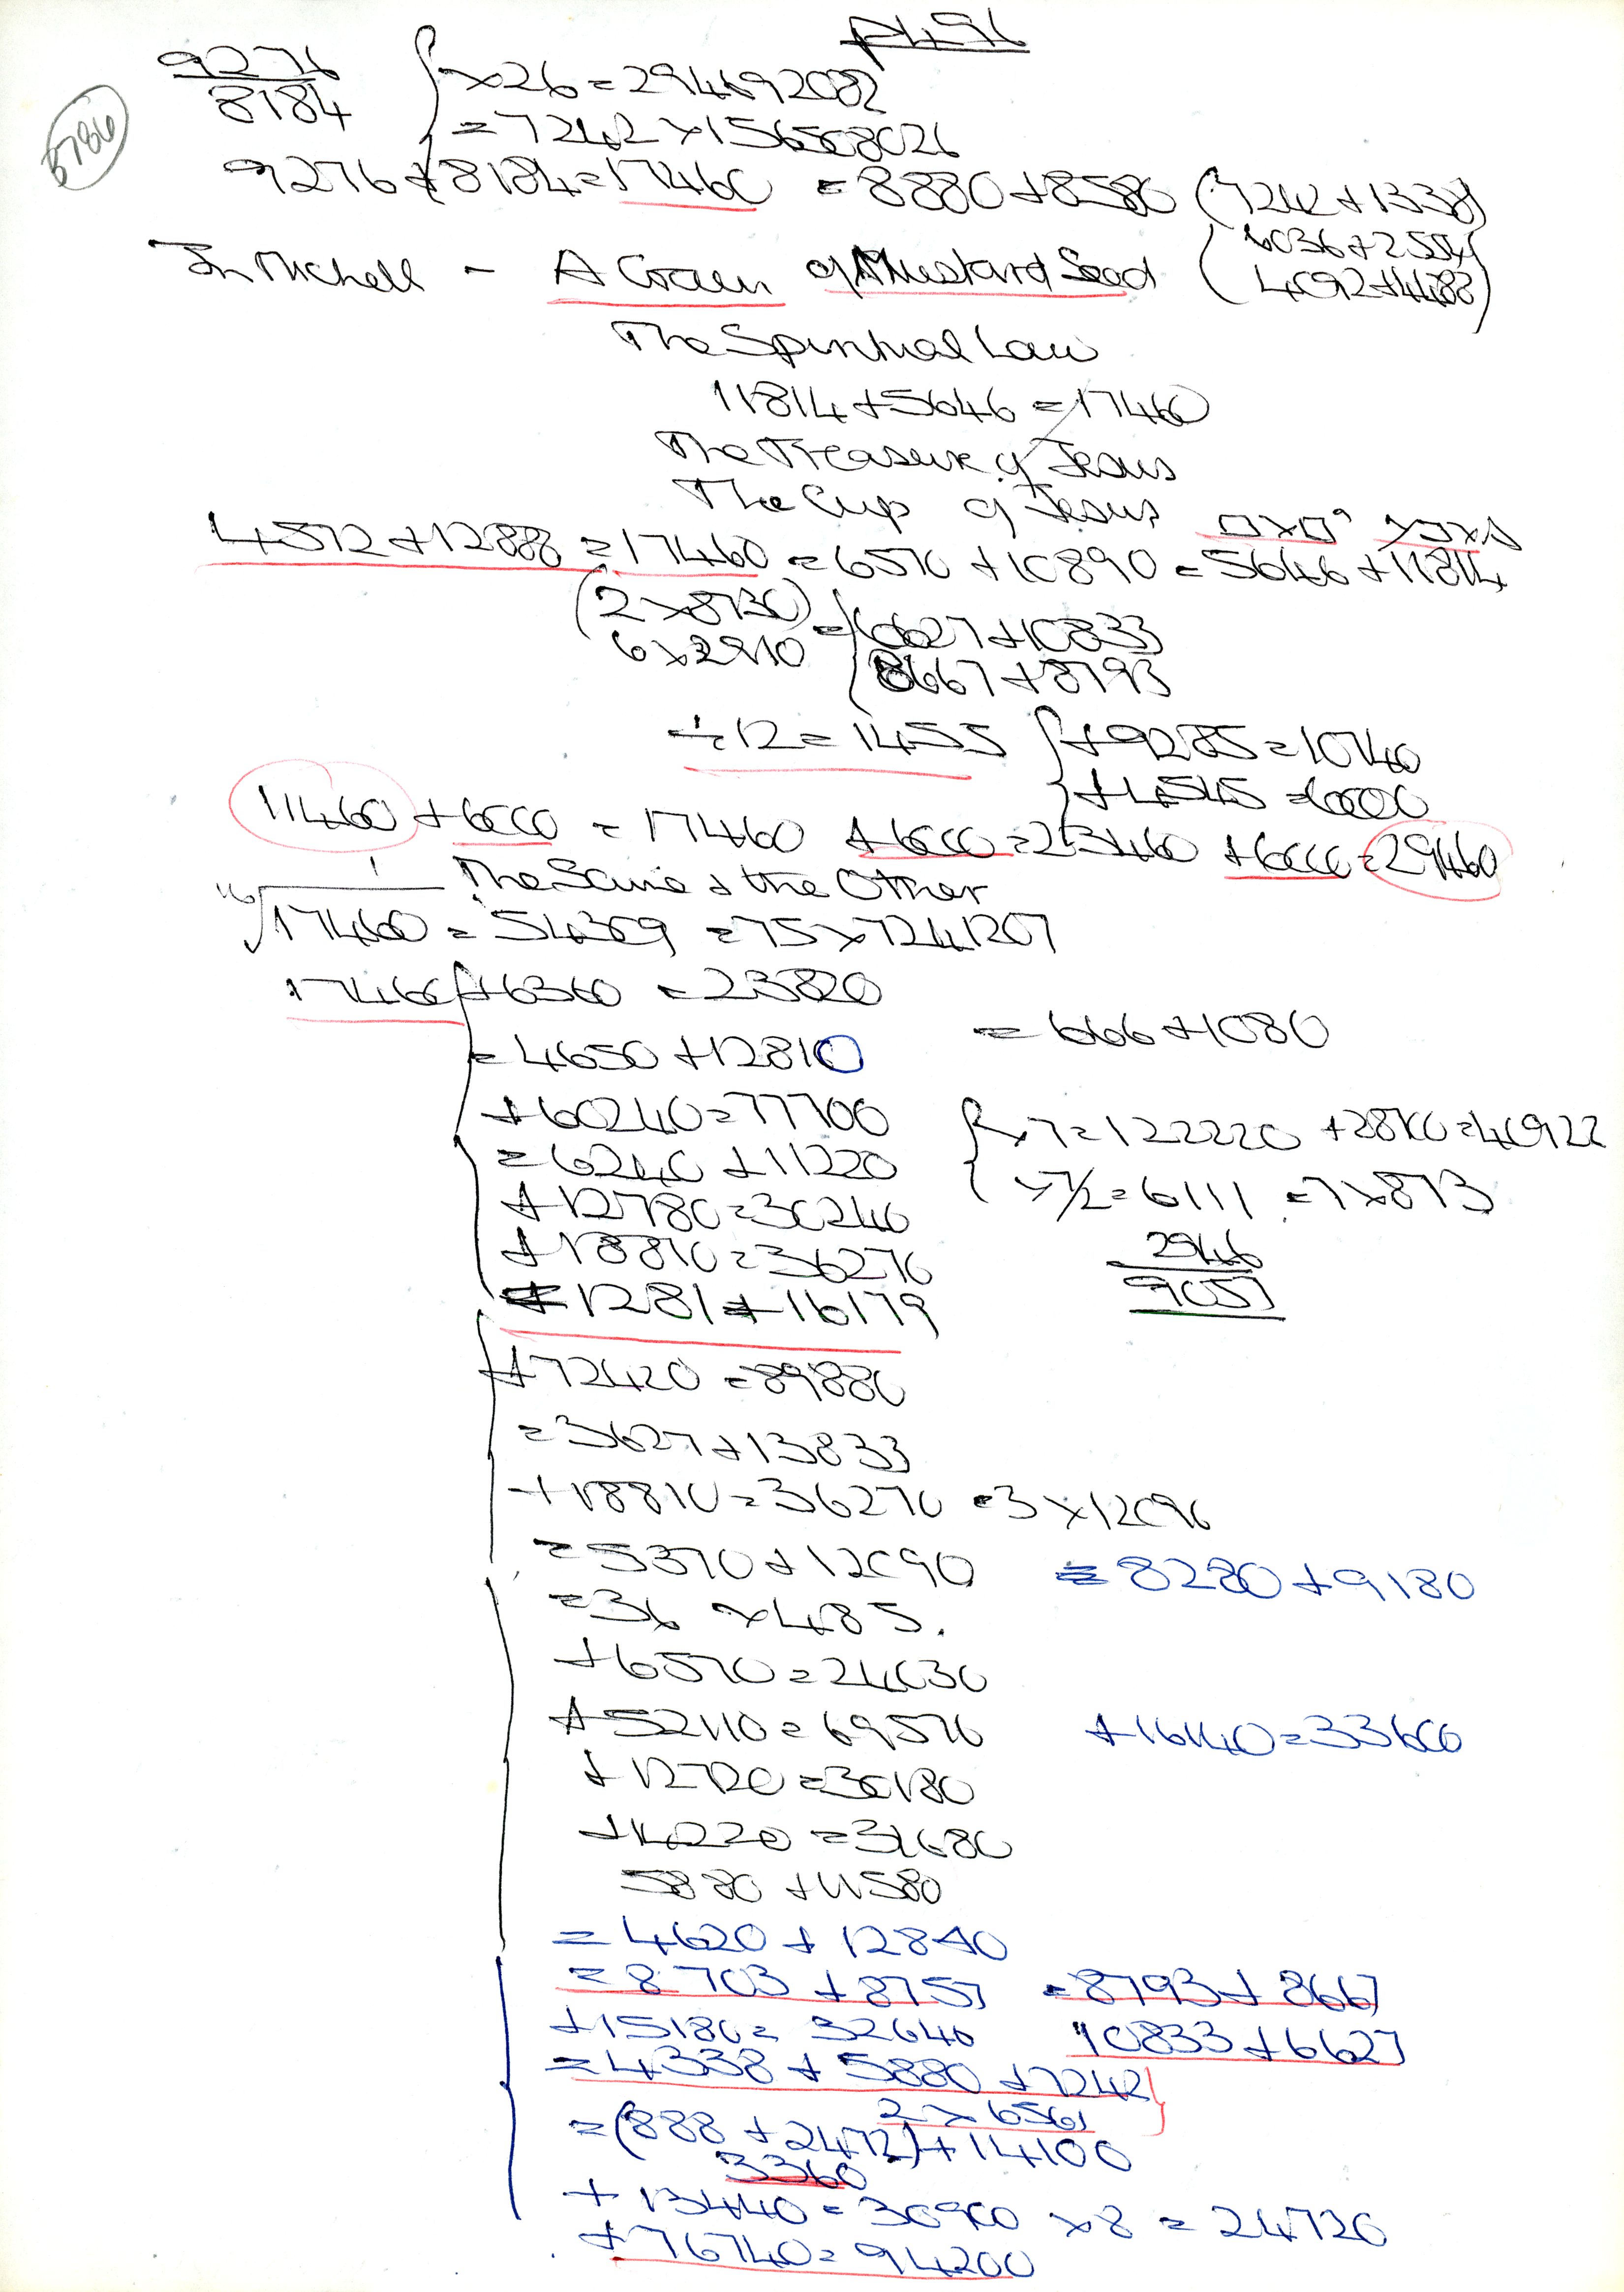 P496
9276
8184
5786
x26 = 294692082
= 7242 x 156508026
9276 + 8184 = 17460 = 8880 + 8580 (7242 + 1338)
(6036 + 2554
4092 + 4488)
Jn Michell – A Grain of Mustard Seed
The Spiritual Law
11814 + 5646 = 17460
The Treasure of Jesus
The Cup of Jesus
4572 + 12888 = 17460 = 6570 + 10890 = 5646 + 11814
(2 x 8730)
6 x 2910
= 6627 + 10833
8667 + 8793
÷ 12 = 1455
+ 9285 = 10740
+ 4545 = 6000
11460 + 6000 = 17460 + 6000 = 23460 + 6000 = 29460
The Same & the Other
16√17460 = 54309 = 75 x 7241207
17460 + 6360 = 23820
= 666 + 1080
= 4650 + 12810
+ 60240 = 77700
x 7 = 122220 + 28700 = 40922
= 6240 + 11220
x 7/2 = 6111 = 7 x 873
+ 12780 = 30240
+ 18810 = 36270
2946
9057
= 1281 + 16179
+ 72420 = 89880
= 3627 + 13833
+ 18810 = 36270 = 3 x 12090
= 5370 + 12090
= 8280 + 9180
= 36 x 485.
+ 6570 = 24030
+ 52110 = 69570
+ 16140 = 33600
+ 12720 = 30180
+ 14220 = 31680
5880 + 11580
= 4620 + 12840
= 8703 + 8757 = 8793 + 8667
+ 15180 = 32640
10833 + 6627
= 4338 + 5880 + 7242
2 x 6561
= (888 + 2472) + 14100
3360
+ 13440 = 30900 x 8 = 24720
+ 76740 = 94200